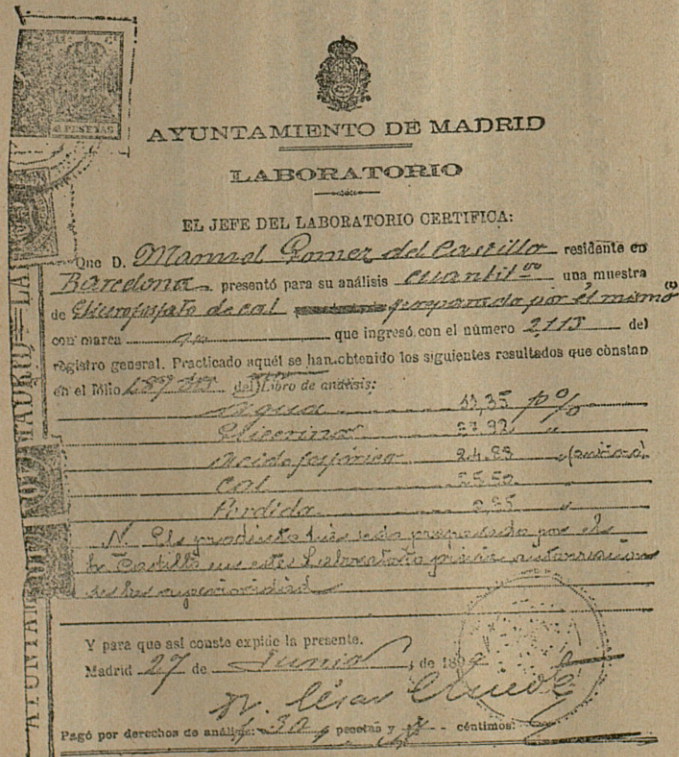 2 PESETAS
AYUNTAMIENTO DE MADRID
LABORATORIO
EL JEFE DEL LABORATORIO CERTIFICA:
Que D. Manuel Gomez del Castillo residente en
Barcelona presentó para su análisis cuantit.vo una muestra
de Glicerofosfato de cal preparado por él mismo
con marca que ingresó con el número 2,115 del
registro general. Practicado aquél se han obtenido los siguientes resultados que constan
en el fólio 189 del Libro de análisis:
Agua p%
Glicerina 27,92 "
Acido fosfórico 24,83 "
Cal 25,50
Pérdida "
N. El producto preparado por el
Sr Castillo en este Laboratorio previa autorización
de la superioridad
Y para que así conste expide la presente.
Madrid 27 de Junio de
César Chicote
Pagó por derechos de análisis: 30 pesetas y céntimos: